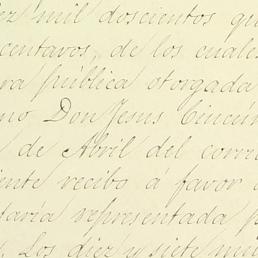 ez mil doscientos qu
centavos, de los cuales
ra pública otorgada
no Don Jesus Cincún
de Abril del corri
ente recibo á favor
taría representada p
Los diez y siete mil